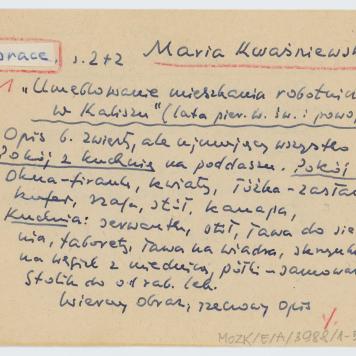 prace, s. 2+2 Maria Kwaśniewsk
1 "Umeblowanie mieszkania robotnic
w Kaliszu" (lata pierw. w. św. i powo
Opis b. zwięzły, ale ujmujący wszystko
Pokój z kuchnią na poddaszu. Pokój
Okna-firanki, kwiaty, łóżka-zasła
kufer, szafa, stół, kanapa,
Kuchnia: serwantka, stół, ława do sie
nia, taborety, ława na wiadra, skrzynk
na węgiel z miednicą, półki-samowar
Stolik do odrab. lek.
Wierny obraz, rzeczowy opis
MOZK/E/A/3988/1-3